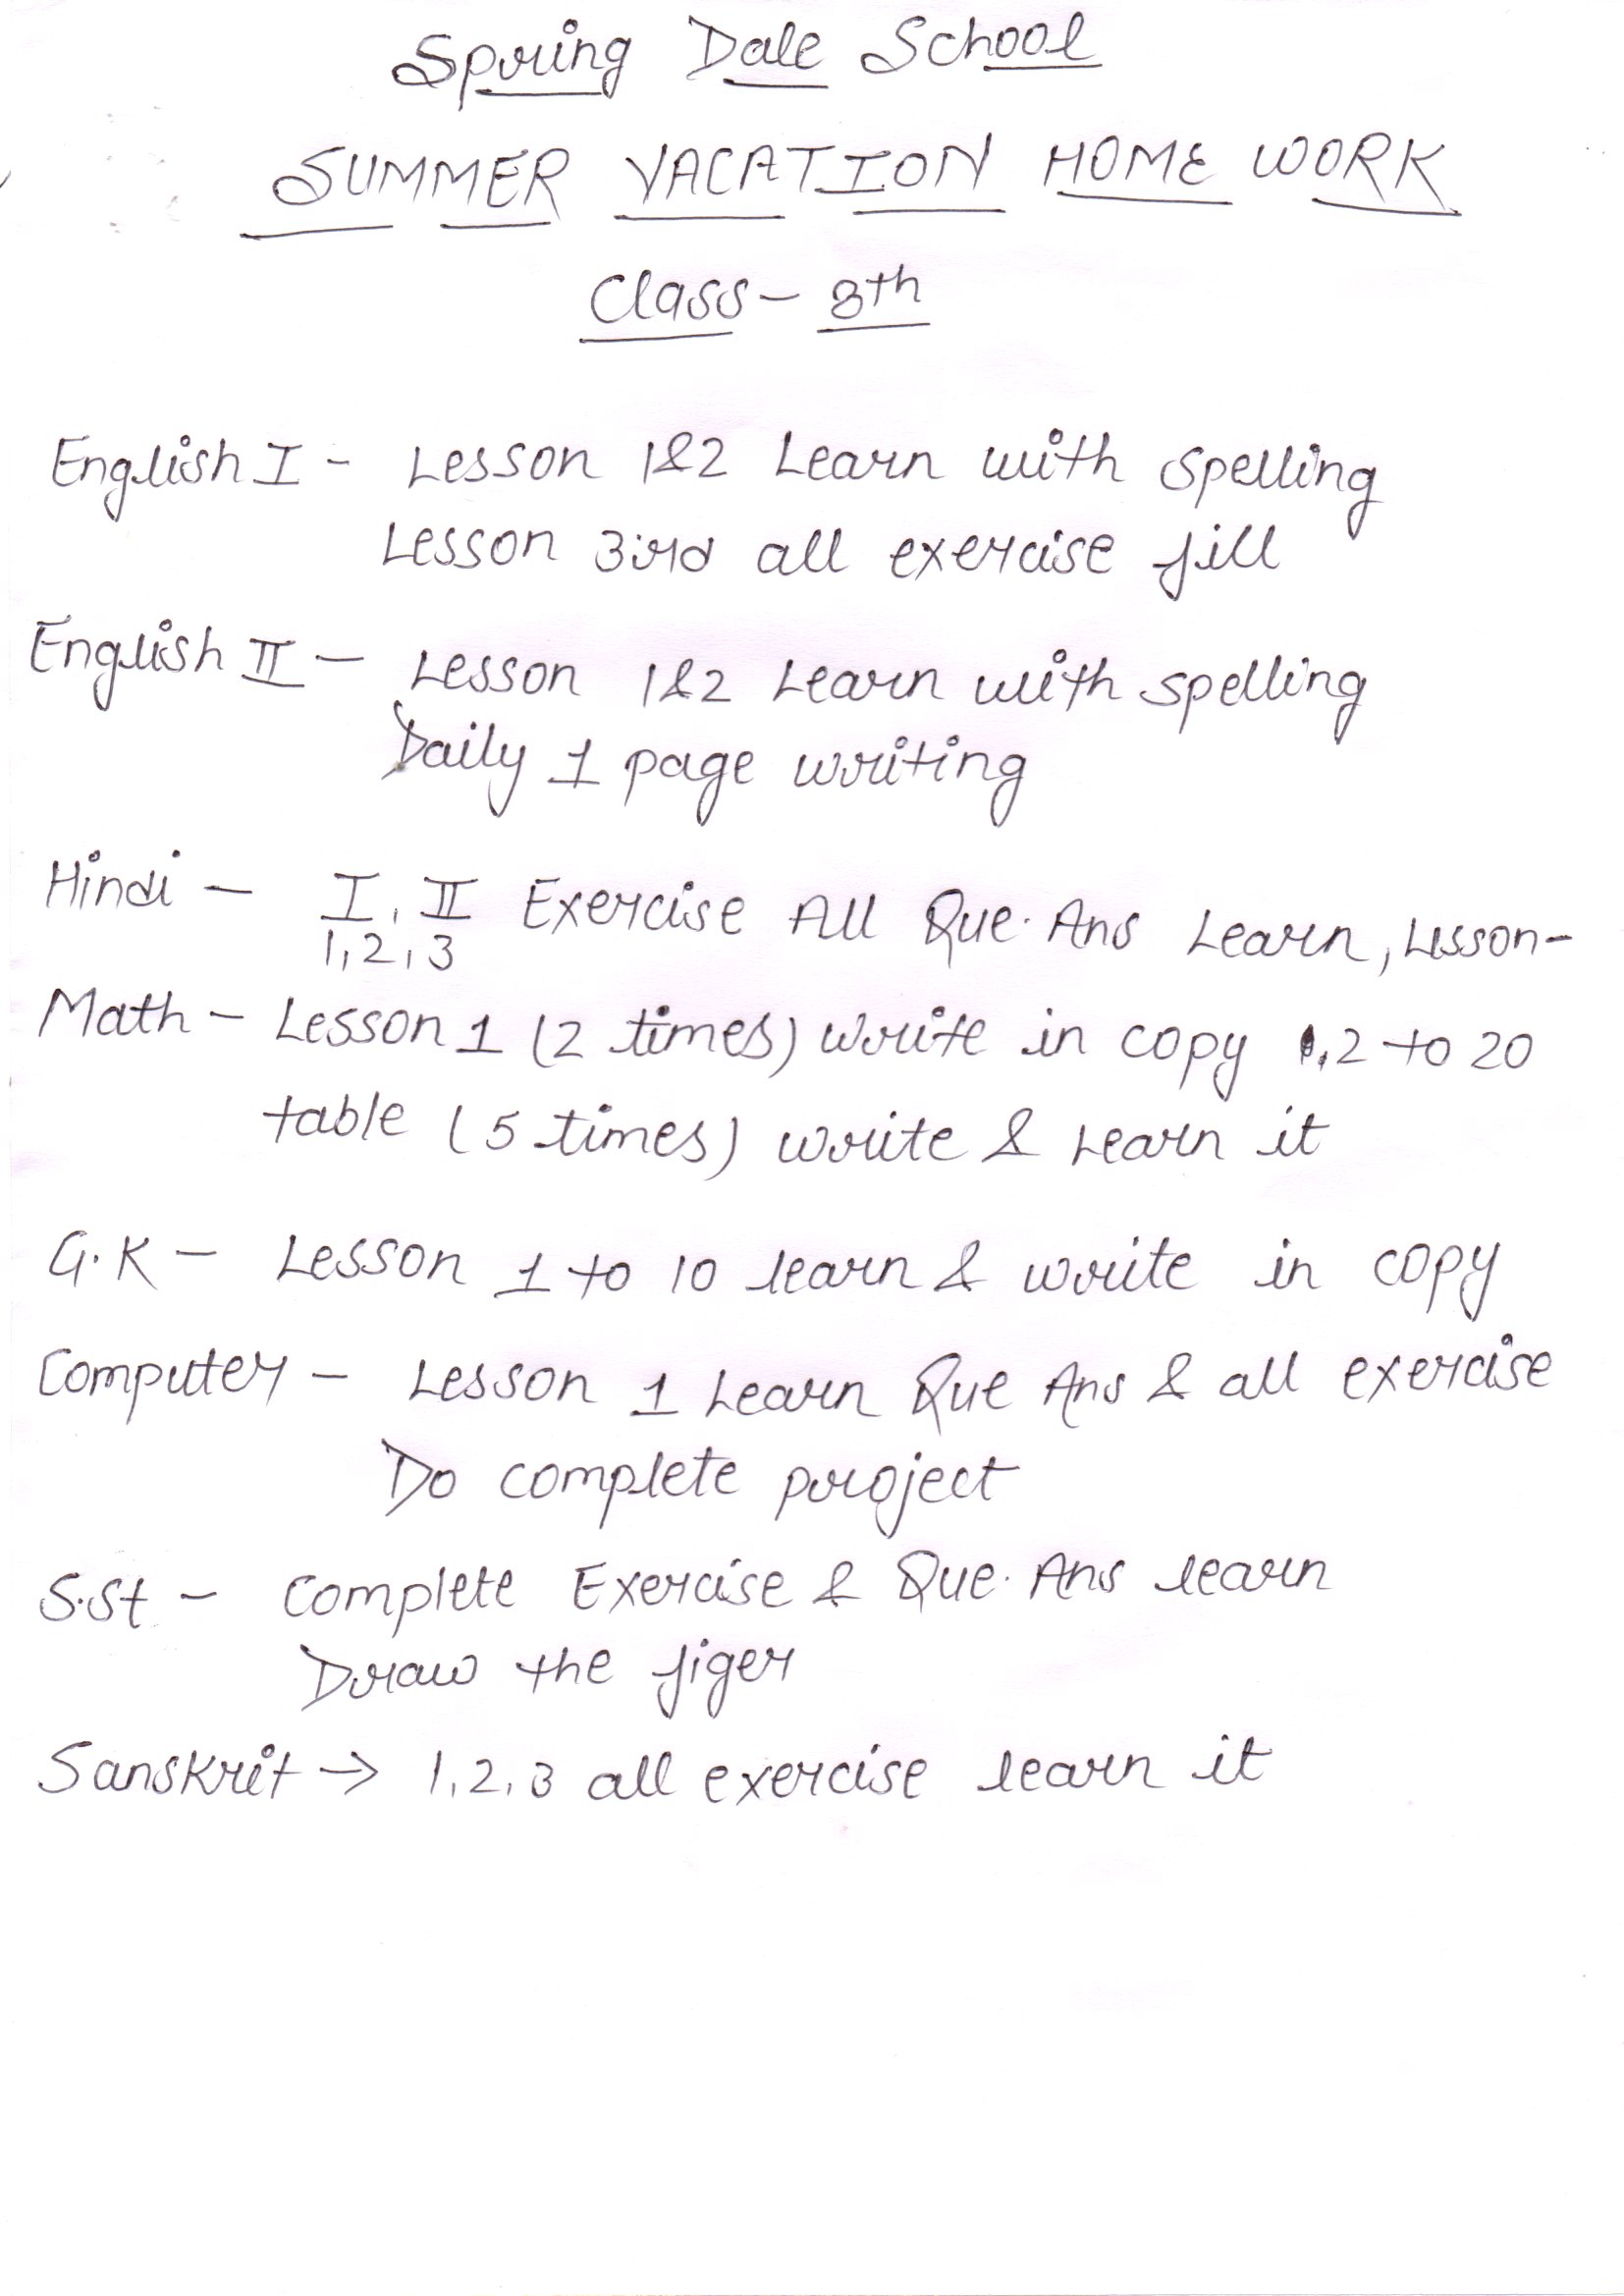 Spring Dale School
SUMMER VACATION HOME WORK
Class - 8th
English I - Lesson 1&2 Learn with spelling
Lesson 3rd all exercise fill
English II - Lesson 1&2 Learn with spelling
Daily 1 page writing
Hindi - I, II Exercise All Que. Ans Learn, Lesson-
1,2,3
Math - Lesson 1 (2 times) write in copy , 2 to 20
table (5 times) write & Learn it
G.K - Lesson 1 to 10 learn & write in copy
Computer - Lesson 1 Learn Que Ans & all exercise
Do complete project
S.St - Complete Exercise & Que. Ans learn
Draw the figer
Sanskrit → 1,2,3 all exercise learn it